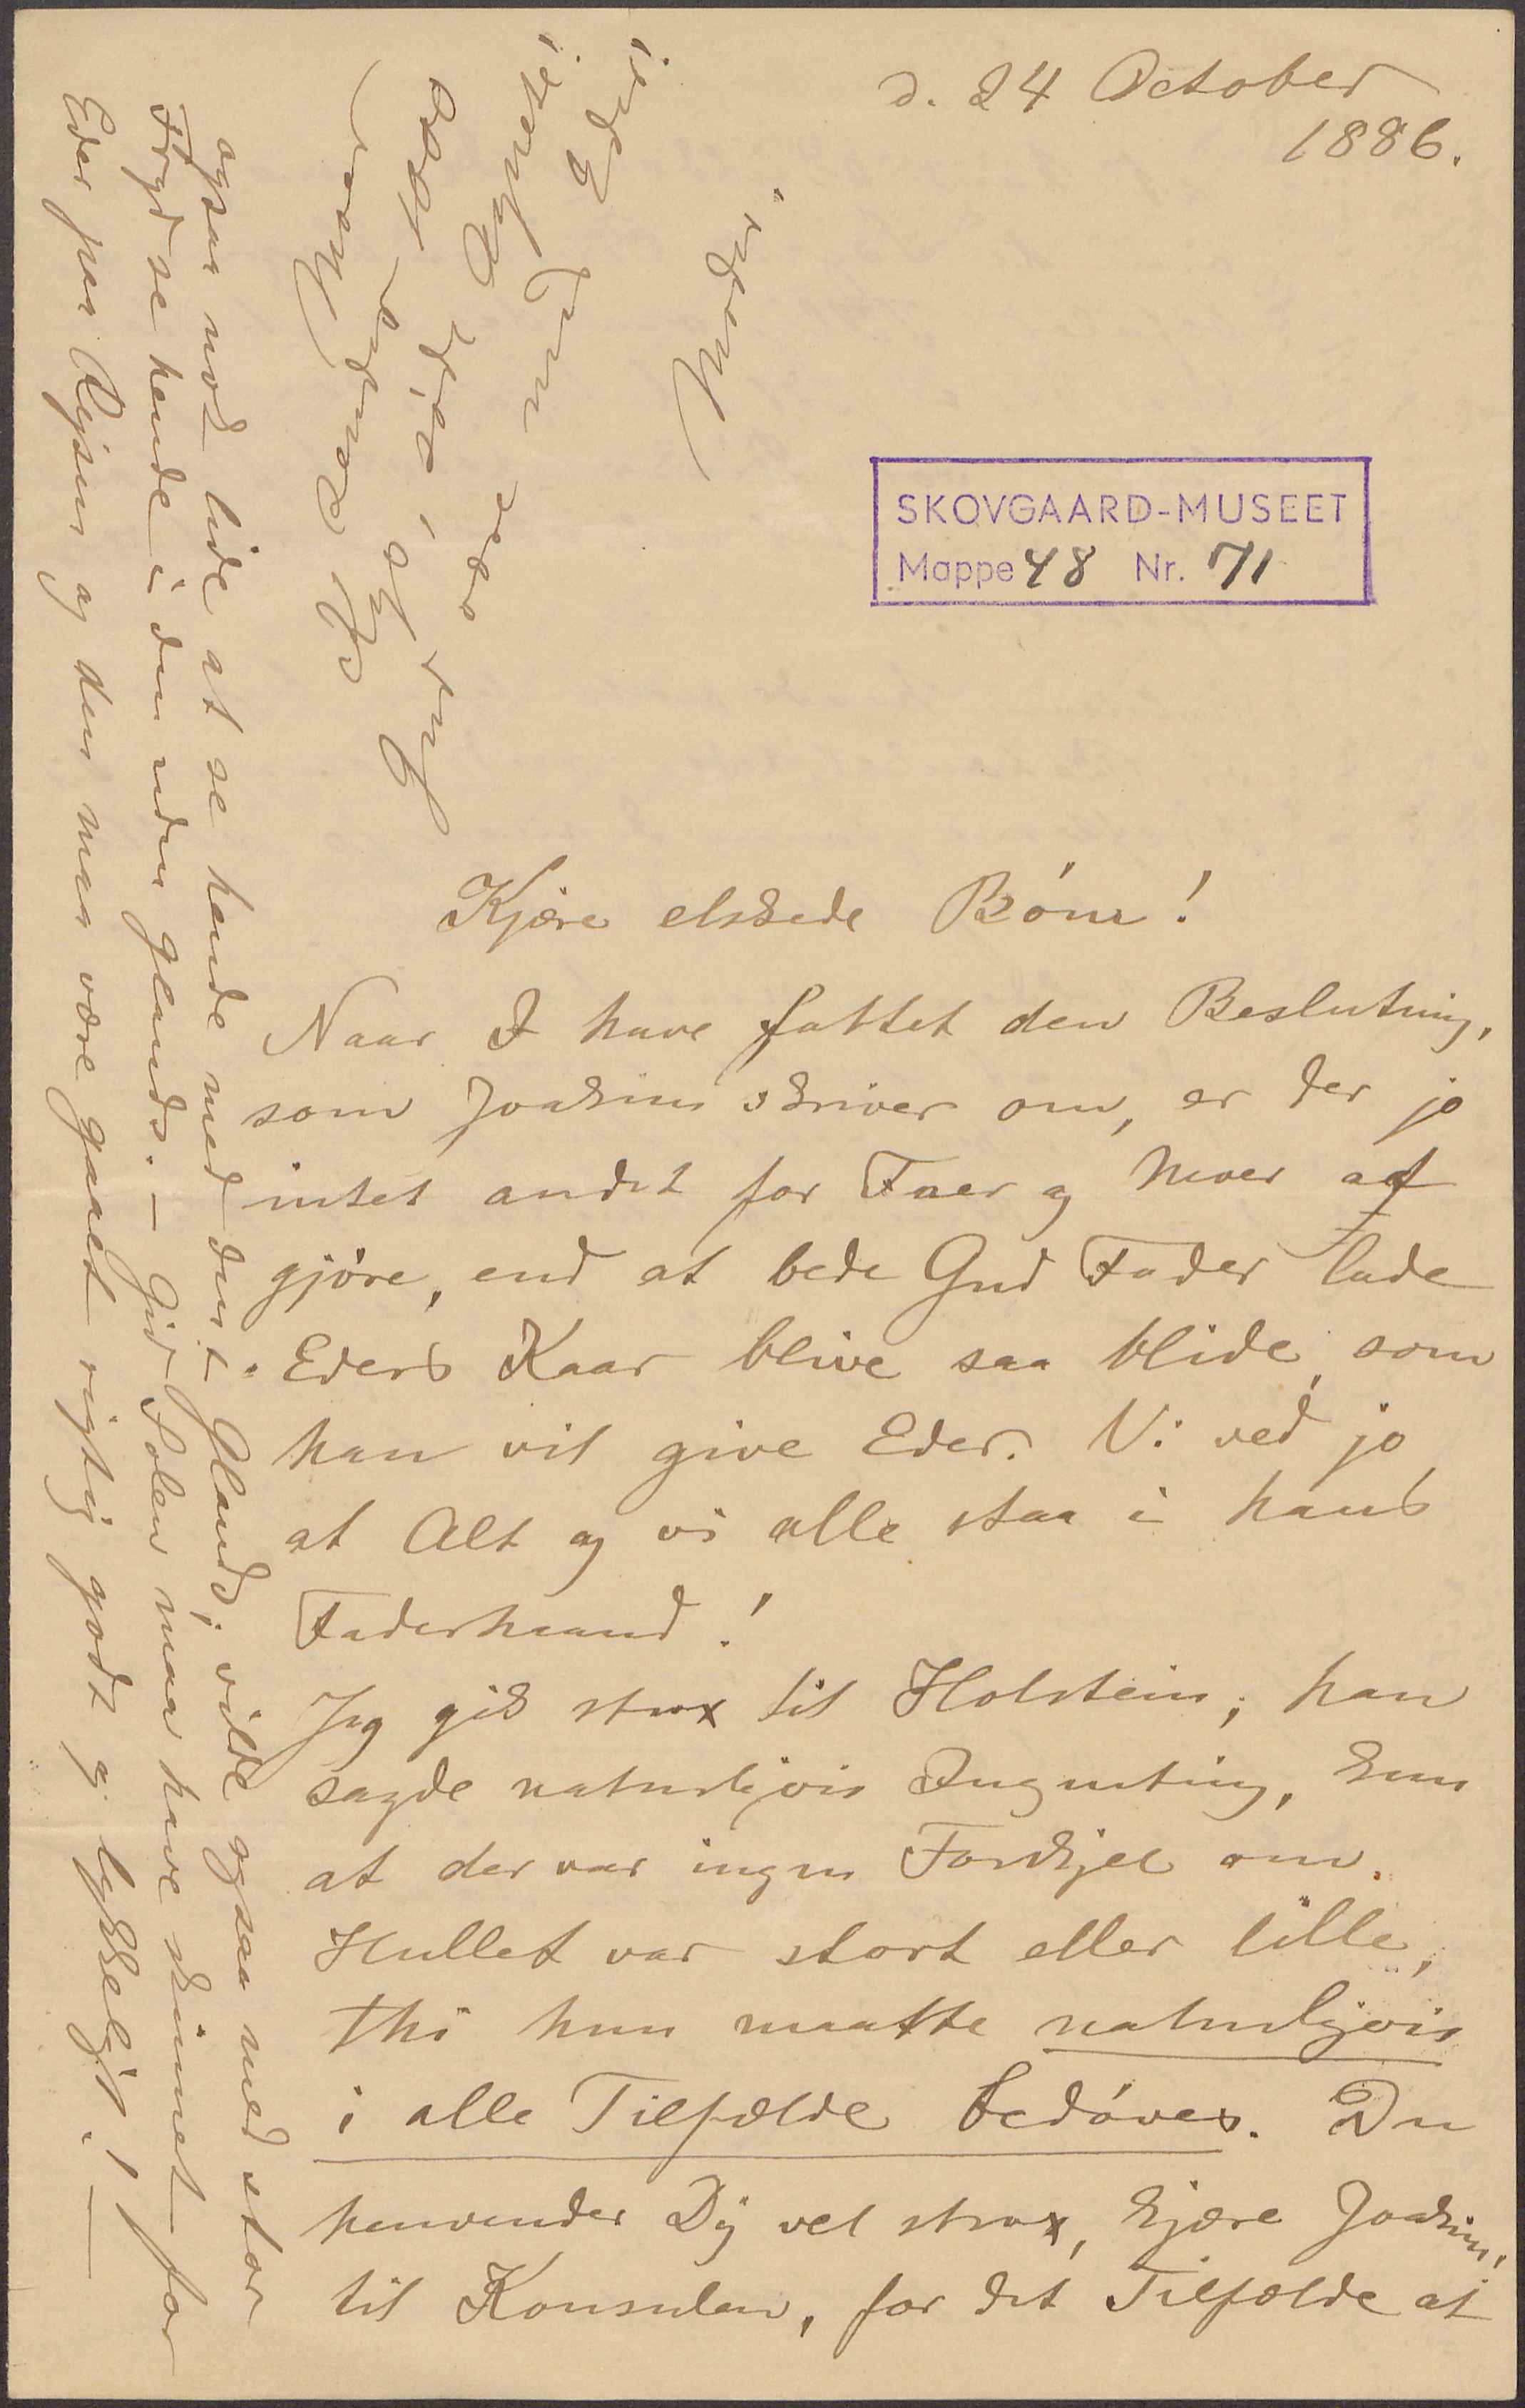 d. 24 October
1886.
SKOVGAARD-MUSEET
Mappe 48 Nr. 71
Kjære elskede Börn!
Naar I have fattet den Beslutning,
som Joakim skriver om, er der jo
intet andet for Faer og Moer at
gjöre, end at bede Gud Fader lade
Eders Kaar blive saa blide, som
han vil give Eder. Vi ved jo
at Alt og vi alle staa i hans
Faderhaand!
Jeg gik strax til Holstein; han
sagde naturligvis Ingenting, kun
at der var ingen Forskjel om
Hullet var stort eller lille,
thi hun maatte naturligvis
i alle Tilfælde bedöves. Du
henvender Dig vel strax, kjære Joakim!
til Konsulen, for det Tilfælde at
ogsaa nok lide at se hende med den Glands; vilde ogsaa med stor
Fryd se hende i den uden glands. — Gid Solen maa have skinnet for
Eder paa Rejsen og den maa være gaaet rigtig godt og lykkeligt! —
og
Eders
Moder